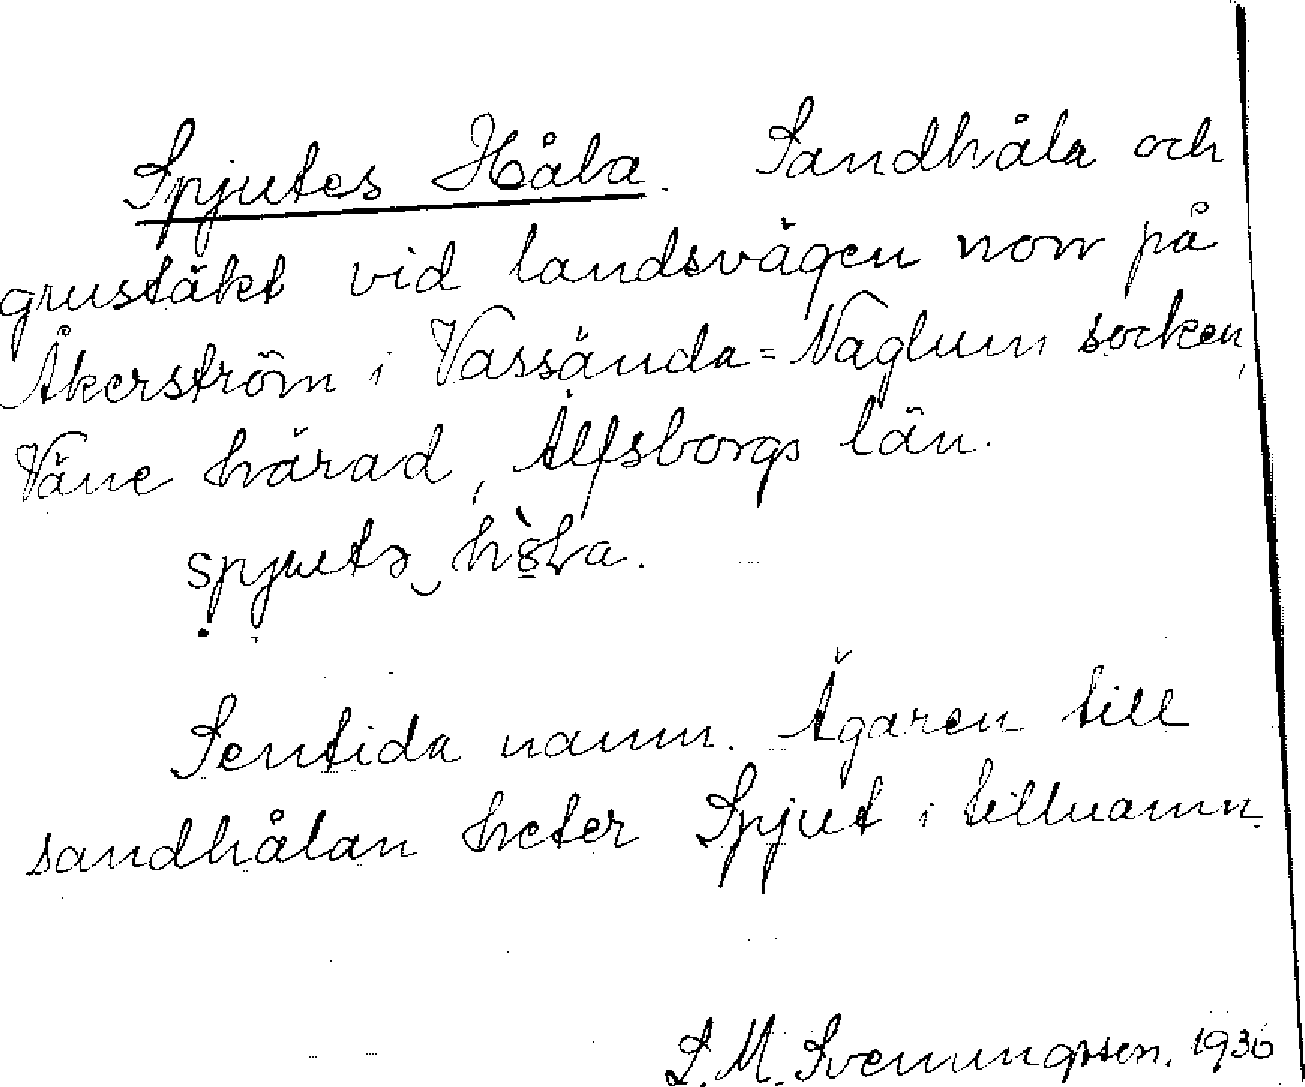 Spjutes Håla. Sandhåla och
grustäkt vid landsvägen norr på
Åkerström i Vassända=Naglum socken,
Väne härad, Älfsborgs län.
spjutəs hòla.
Sentida namn. Ägaren till
sandhålan heter Spjut i tillnamn.
S. M. Svenningsson. 1930